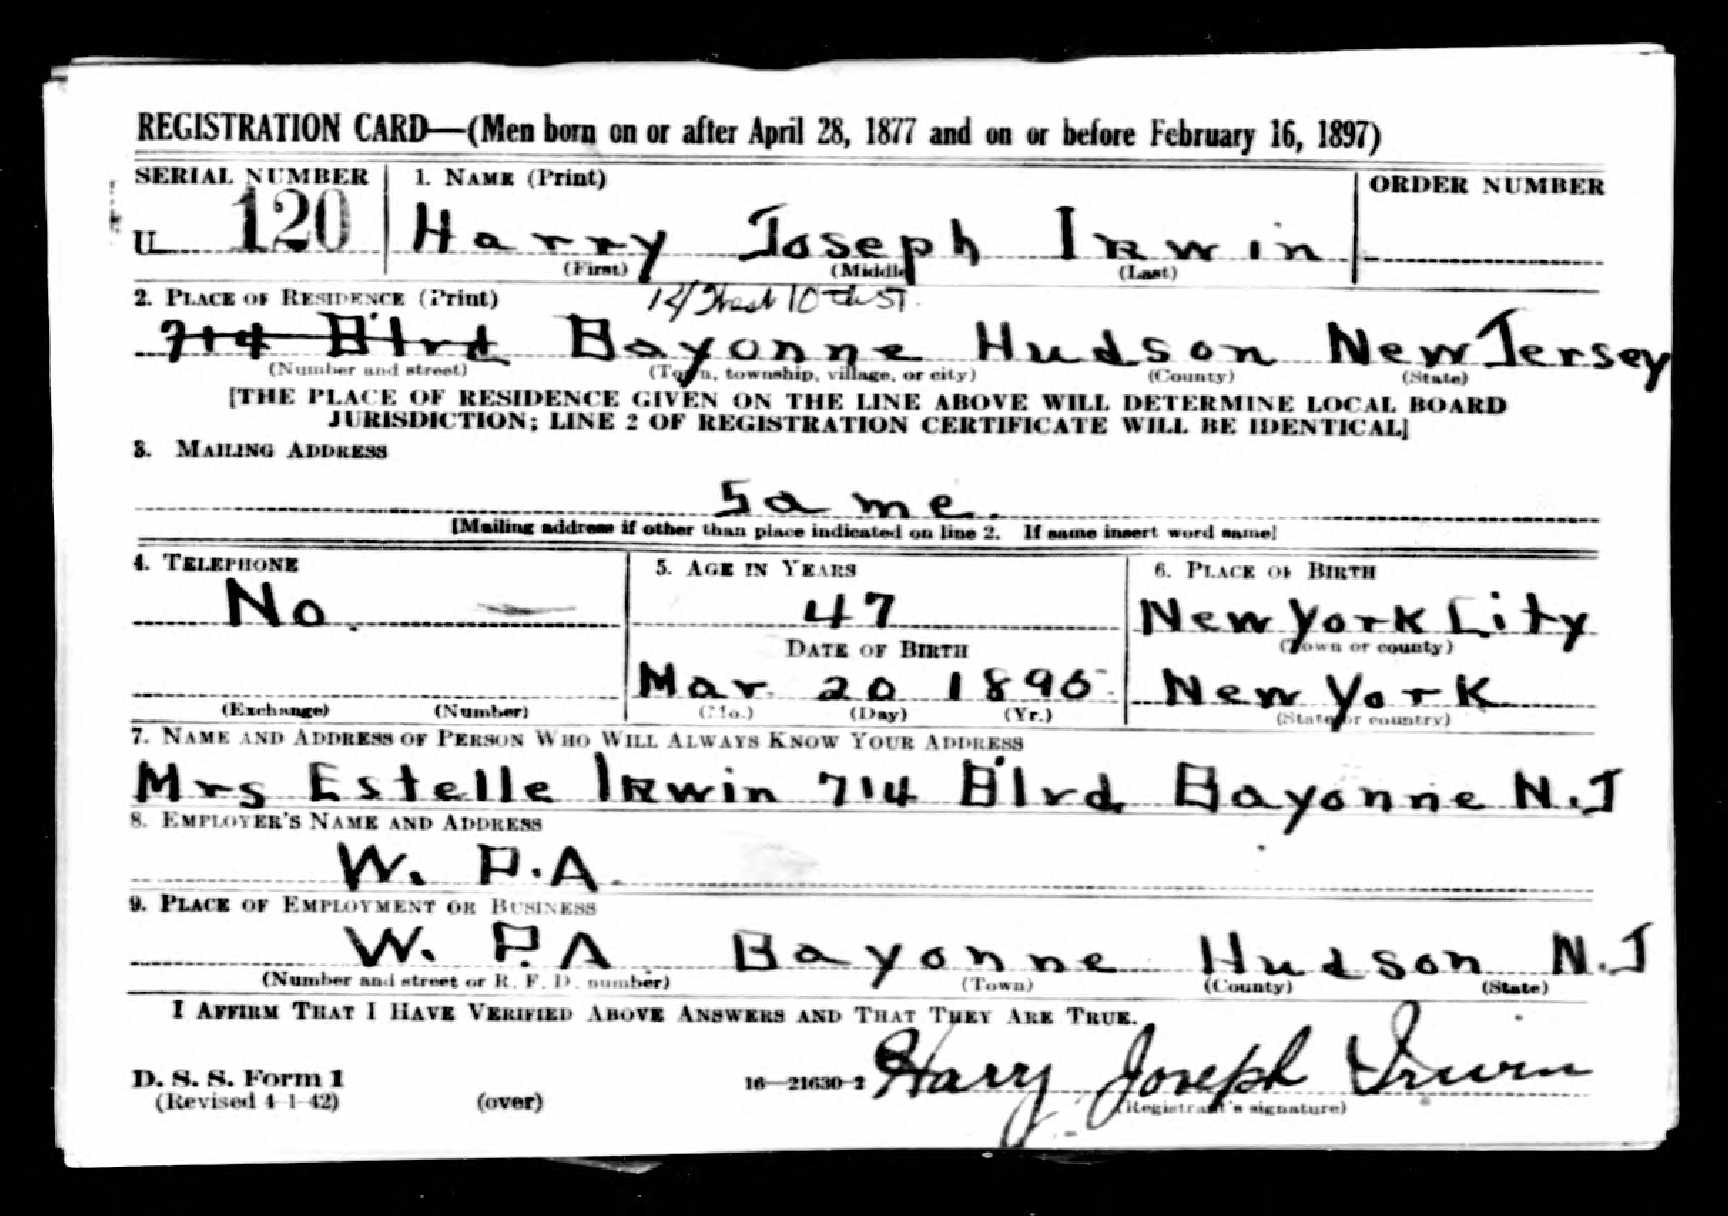 REGISTRATION CARD—(Men born on or after April 28, 1877 and on or before February 16, 1897)
SERIAL NUMBER 1. NAME (Print) ORDER NUMBER
U 120 Harry Joseph Irwin
(First) (Middle) (Last)
2. PLACE OF RESIDENCE (Print) West 10th ST.
714 Blvd Bayonne Hudson New Jersey
(Number and street) (Town, township, village, or city) (County) (State)
[THE PLACE OF RESIDENCE GIVEN ON THE LINE ABOVE WILL DETERMINE LOCAL BOARD
JURISDICTION; LINE 2 OF REGISTRATION CERTIFICATE WILL BE IDENTICAL]
3. MAILING ADDRESS
Same.
[Mailing address if other than place indicated on line 2. If same insert word same]
4. TELEPHONE 5. AGE IN YEARS 6. PLACE OF BIRTH
No. 47 New York City
DATE OF BIRTH (Town or county)
Mar. 20 1895 New York
(Exchange) (Number) (Mo.) (Day) (Yr.) (State or country)
7. NAME AND ADDRESS OF PERSON WHO WILL ALWAYS KNOW YOUR ADDRESS
Mrs Estelle Irwin 714 Blvd Bayonne N.J
8. EMPLOYER'S NAME AND ADDRESS
W. P.A.
9. PLACE OF EMPLOYMENT OR BUSINESS
W. P.A Bayonne Hudson N.J
(Number and street or R. F. D. number) (Town) (County) (State)
I AFFIRM THAT I HAVE VERIFIED ABOVE ANSWERS AND THAT THEY ARE TRUE.
D. S. S. Form 1 16—21630-2 Harry Joseph Irwin
(Revised 4-1-42) (over) (Registrant's signature)